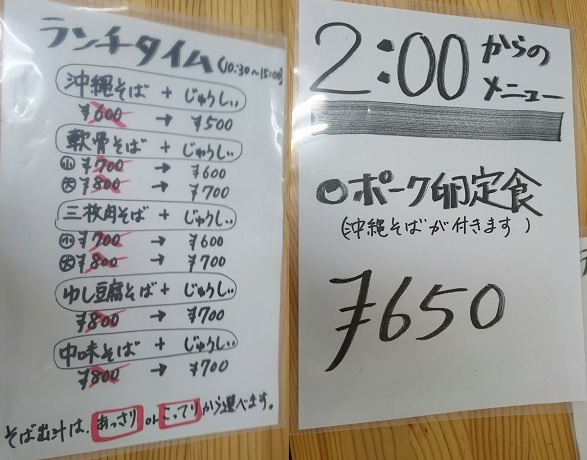 ランチタイム (10:30～15:00)
沖縄そば + じゅうしぃ
¥600 → ¥500
軟骨そば + じゅうしぃ
小 ¥700 → ¥600
大 ¥800 → ¥700
三枚肉そば + じゅうしぃ
小 ¥700 → ¥600
大 ¥800 → ¥700
ゆし豆腐そば + じゅうしぃ
¥800 → ¥700
中味そば + じゅうしぃ
¥800 → ¥700
そば出汁は、あっさり or こってりから選べます。
2:00からの
メニュー
○ポーク卵定食
(沖縄そばが付きます)
¥650